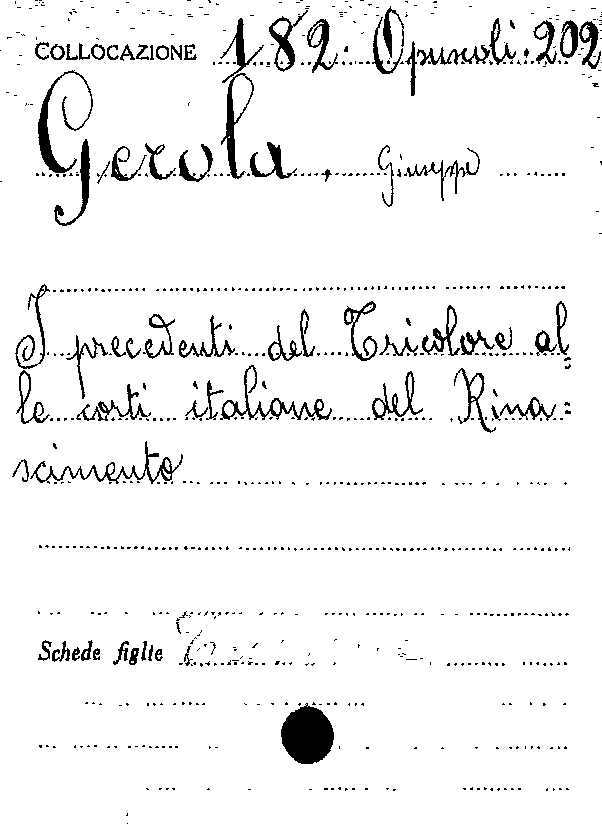 COLLOCAZIONE 182. Opuscoli. 202
Gerola, Giuseppe
I precedenti del Tricolore al=
le corti italiane del Rina=
scimento
Schede figlie